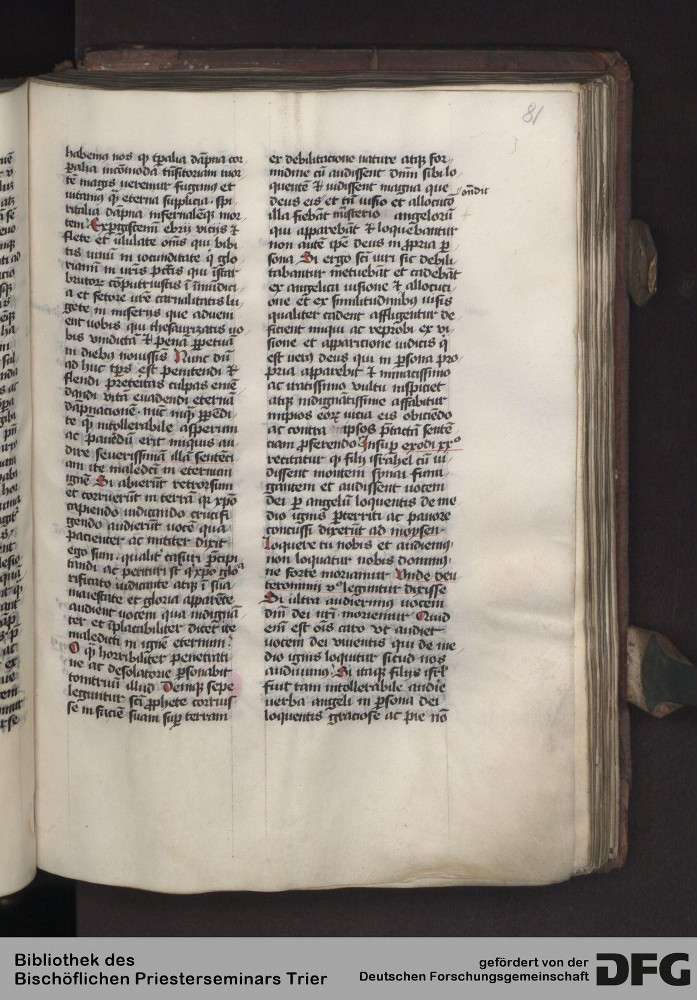 81
habemus nos qͥ tp̄alia dāpna cor
p̄alia incōmoda trāsitoriam mor
tē magis veremur fugimus et
vitamus qͣ eterna supplicia · spi
ritalia dāpna infernalēqꝫ mor
tem · Exp̄gistemī ebrij vicijs ⁊
flete et ululate om̄s qui bibi
tis vinū in iocunditate
brutorꝫ cōputruistis ī inmūdici
a et fetore vr̄e carnalitatis lu
gete in miserijs que adveni
ent vobis qui thesaurizatis vo
bis vindictā ⁊ penā ꝑpetuā
in diebꝫ novissīs Nunc dū
ad huc tp̄s est penitendi ⁊
flendi preteritas culpas
evadendi eternā
dāpnacionē · nūc
te qͣ intollerabile asperum
ac pavēdū erit iniquis au
dire severissimā illā sentēci
am ite maledicti in eternum
ignē Si abierūt retrorsum
et corruerūt in terrā qͥ xp̄o
capiendo iudicando crucifi
gendo audierūt vocē quā
pacienter ac mititer dixit
ego sum · qualit̄ casuri
tandi ac perituri st̄ qͥ xp̄o glo
rificato iudicante atqꝫ ī sua
maiestate et gloria apparēte
audient vocem quā indignā
ter et īplacabiliter dicet ite
maledicti in ignē eternum ·
O qͣ horribiliter penetrati
ue ac desolatorie ꝑsonabit
tonitruū illud · Deniqꝫ sepe
leguntur sc̄i ꝓphete corruis
se in faciē suam suꝑ terram
ex debilitacione nature atqꝫ for
midine cū audissent dn̄m sibi lo
quentē ⁊ vidissent magna que
ondit
deus eis et tn̄ visio et allocucio
illa fiebāt misterio angelorū
qui apparebāt ⁊ loquebantur
non autē ip̄e deus in ꝓpria ꝑ
sona Si ergo sc̄i viri sic debili
tabantur metuebāt et cadebāt
ex angelica visione ⁊ allocuci
one et ex similitudinibꝫ visis
qualiter cadent affligentur de
ficient iniqui ac reprobi ex vi
sione et apparicione iudicis qͥ
est verꝫ deus qui in persona pro
pria apparebit ⁊ minacissimo
ac iratissimo vultu inspiciet
atqꝫ indignātissime affabitur
impios eorꝫ vicia eis obiciēdo
ac contra ipsos p̄tactā sentē
ciam ꝓferendo Insuꝑ exodi xxͦ
recitatur qͥ filij israhel cū vi
dissent montem synai fumi
gantem et audissent vocem
dei ꝑ angelū loquentis de me
dio ignis ꝑterriti ac pavore
concussi dixerūt ad moysen
Loquere tu nobis et audiemꝰ
non loquatur nobis dominꝰ
ne forte moriamur Unde deu
teronomij vͦ leguntur dixisse
Si ultra audierimꝰ vocem
dn̄i dei nr̄i moriemur Quid
em̄ est om̄s caro vt audiet
vocem dei viventis qui de me
dio ignis loquitur sicud nos
audivimꝰ · Si itaqꝫ filijs isrl̄
fuit tam intollerabile audire
verba angeli in ꝑsona dei
loquentis graciose ac pie nō
Bibliothek des
Bischöflichen Priesterseminars Trier
gefördert von der
Deutschen Forschungsgemeinschaft
DFG